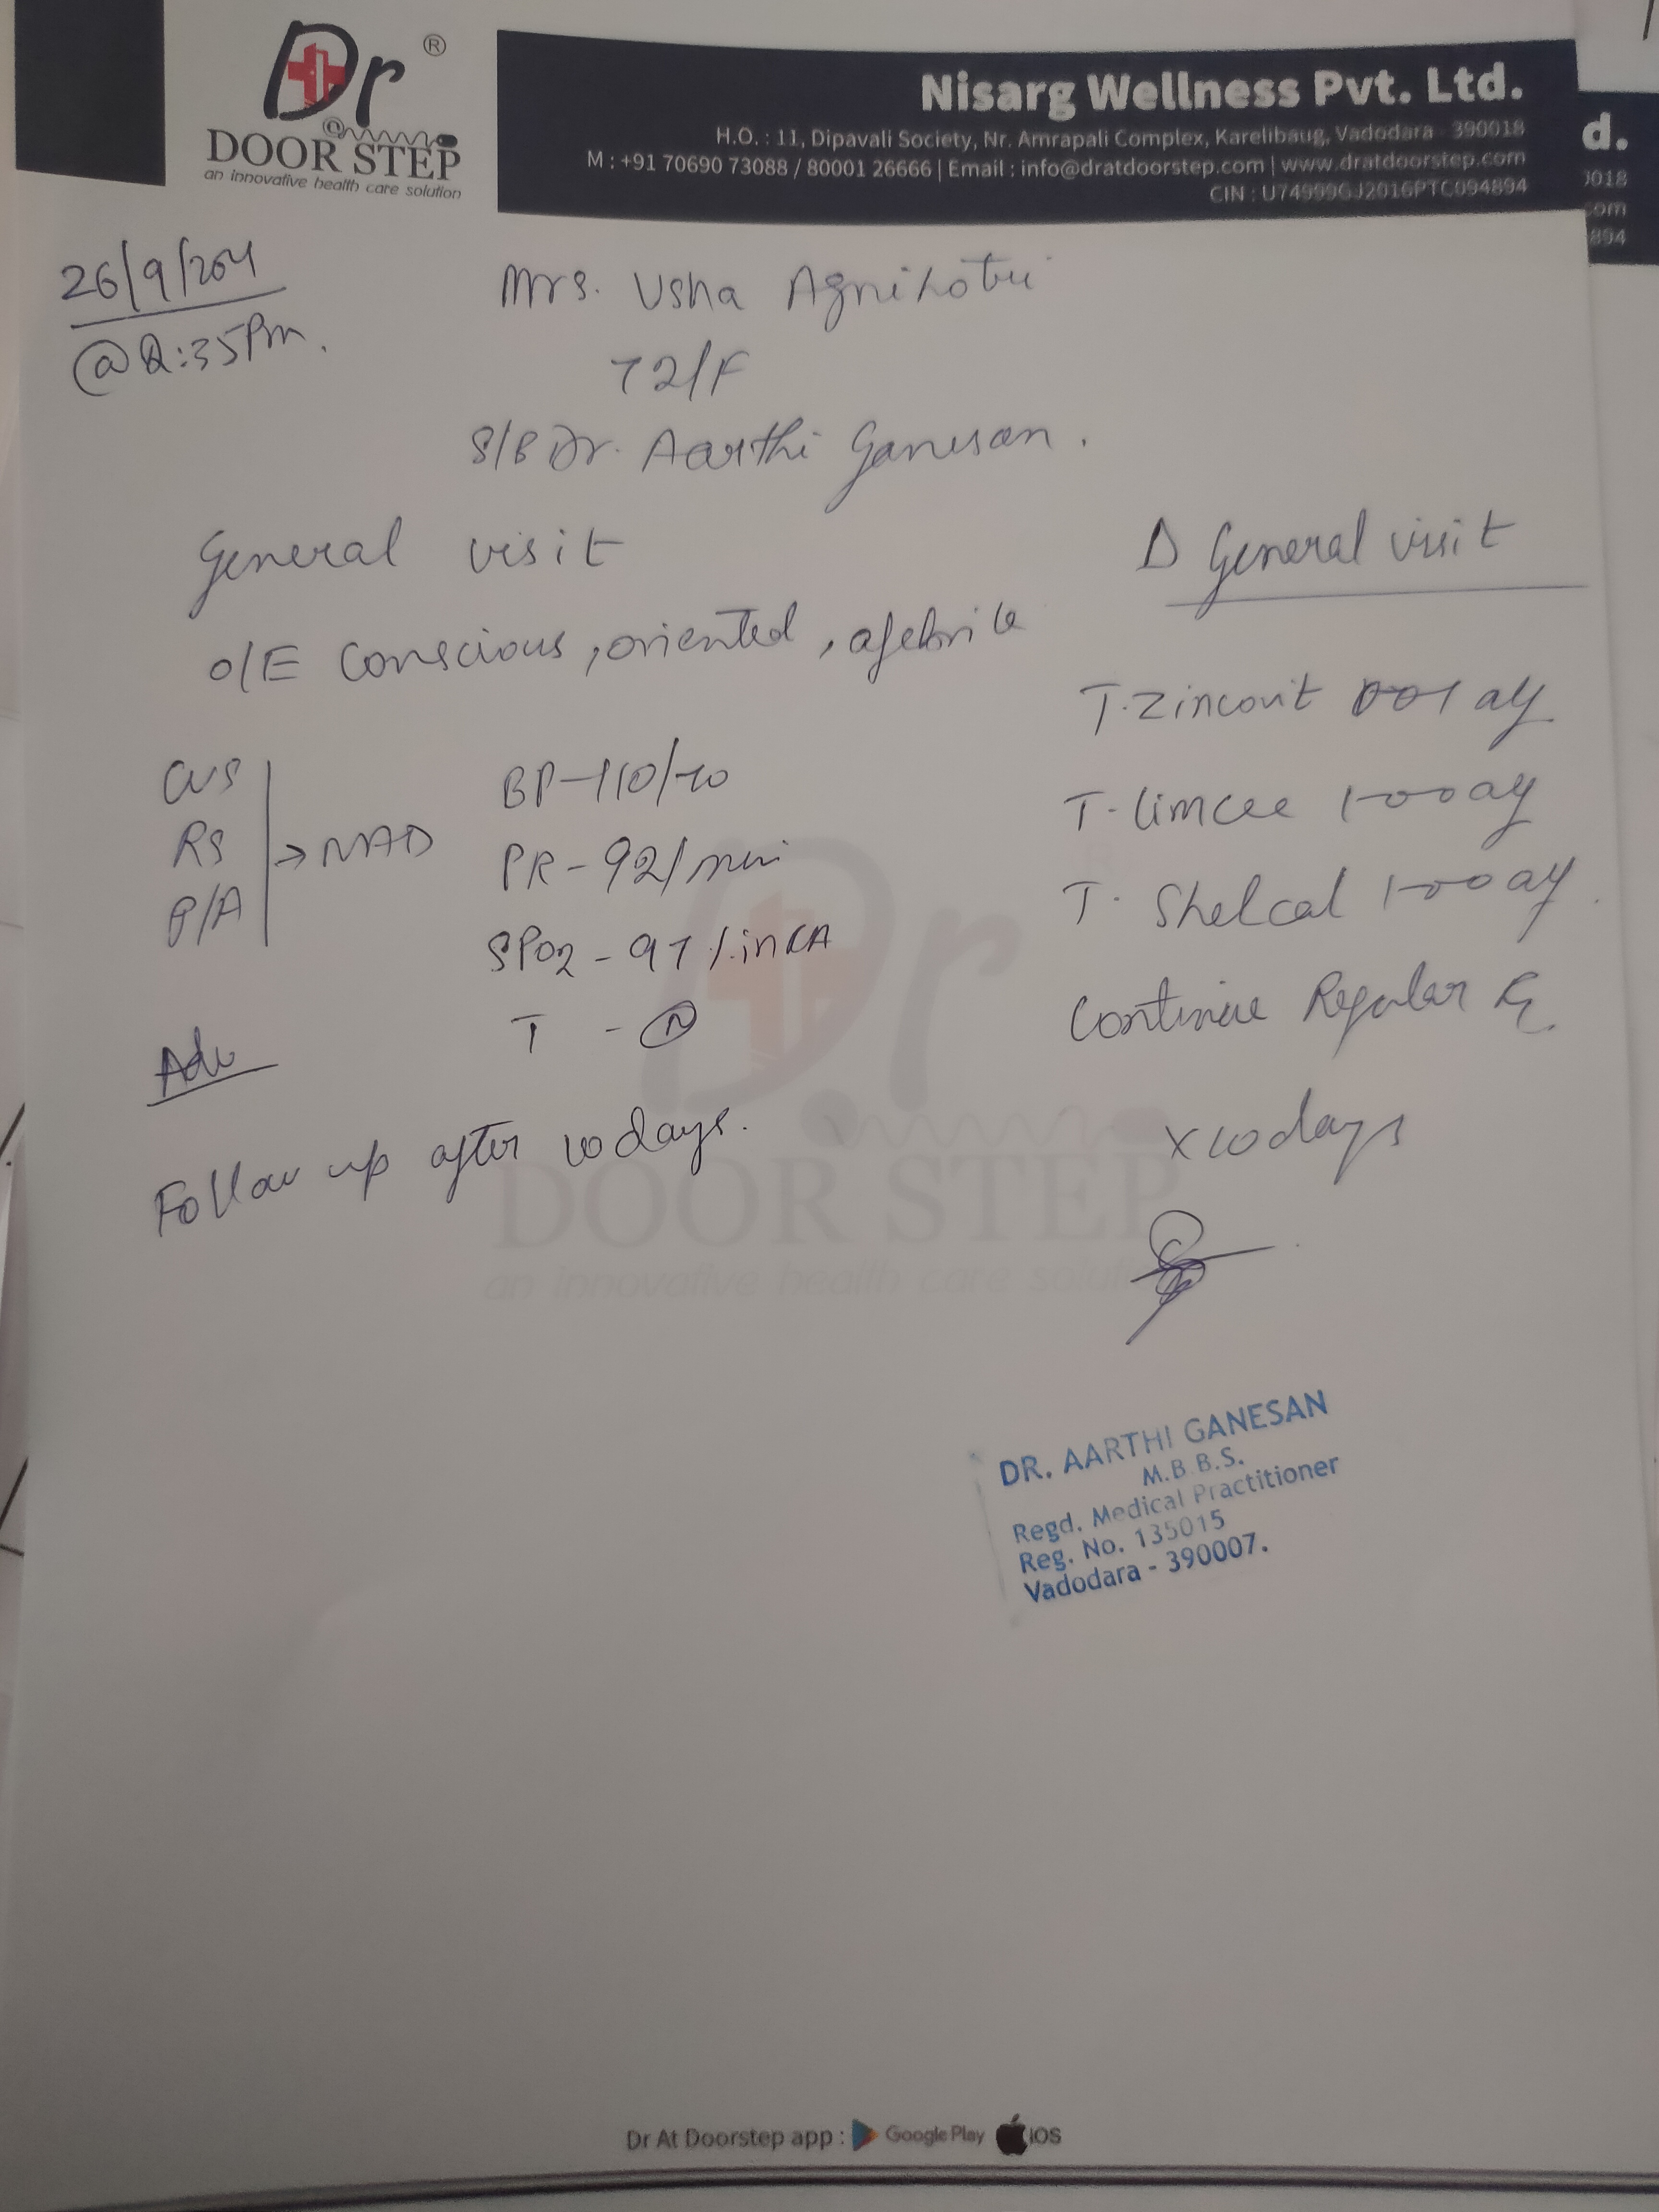 Dr ®
@
DOOR STEP
an innovative health care solution
Nisarg Wellness Pvt. Ltd.
H.O. : 11, Dipavali Society, Nr. Amrapali Complex, Karelibaug, Vadodara - 390018
M : +91 70690 73088 / 80001 26666 | Email : info@dratdoorstep.com | www.dratdoorstep.com
CIN : U74999GJ2016PTC094894
d.
0018
com
894
26/9/
@2:35Pm.
Mrs. Usha Agnihotri
72/F
S/B Dr. Aarthi Ganesan.
General visit
O/E Conscious, oriented, afebrile
CVS
RS
P/A
→ NAD
BP-110/70
PR-92/min
SPO2 - 97 %.in RA
T - N
Adv
Follow up after 10 days.
Δ General visit
T. Zincovit 001
T. Limcee 1-00
T. Shelcal 1-00
Continue Regular Rx
x 10 days
DR. AARTHI GANESAN
M.B.B.S.
Regd. Medical Practitioner
Reg. No. 135015
Vadodara - 390007.
Dr
DOOR STEP
an innovative health care solution
Dr At Doorstep app : Google Play iOS